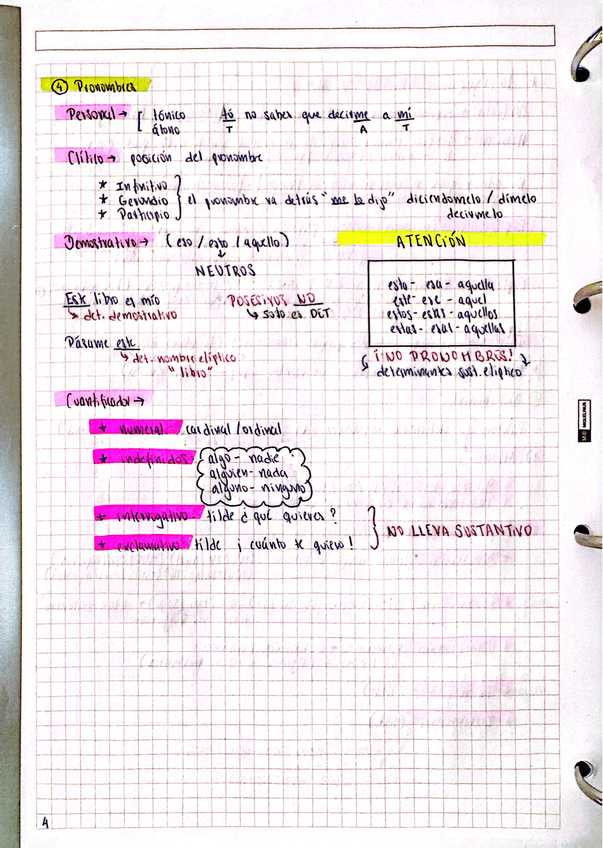 ④ Pronombres
Personal → [ tónico
átono
Tú no sabes que decirme a mí
T A T
Clítico → posición del pronombre
* Infinitivo
* Gerundio
* Participio
} el pronombre va detrás "me lo dijo" diciendomelo / dímelo
decirmelo
Demostrativo → (eso / esto / aquello)
NEUTROS
ATENCIÓN
esta - esa - aquella
este - ese - aquel
estos - esos - aquellos
estas - esas - aquellas
¡NO PRONOMBRES!
determinantes sust. elíptico
Este libro es mío
det. demostrativo
POSESIVOS NO
solo es DET
Pásame este
det. nombre elíptico
"libro"
Cuantificador →
* numeral: cardinal / ordinal
* indefinidos
algo - nadie
alguien - nada
alguno - ninguno
* interrogativo: tilde ¿ qué quieres ?
* exclamativo tilde ¡ cuánto te quiero !
} NO LLEVA SUSTANTIVO
MIQUELRIUS
4